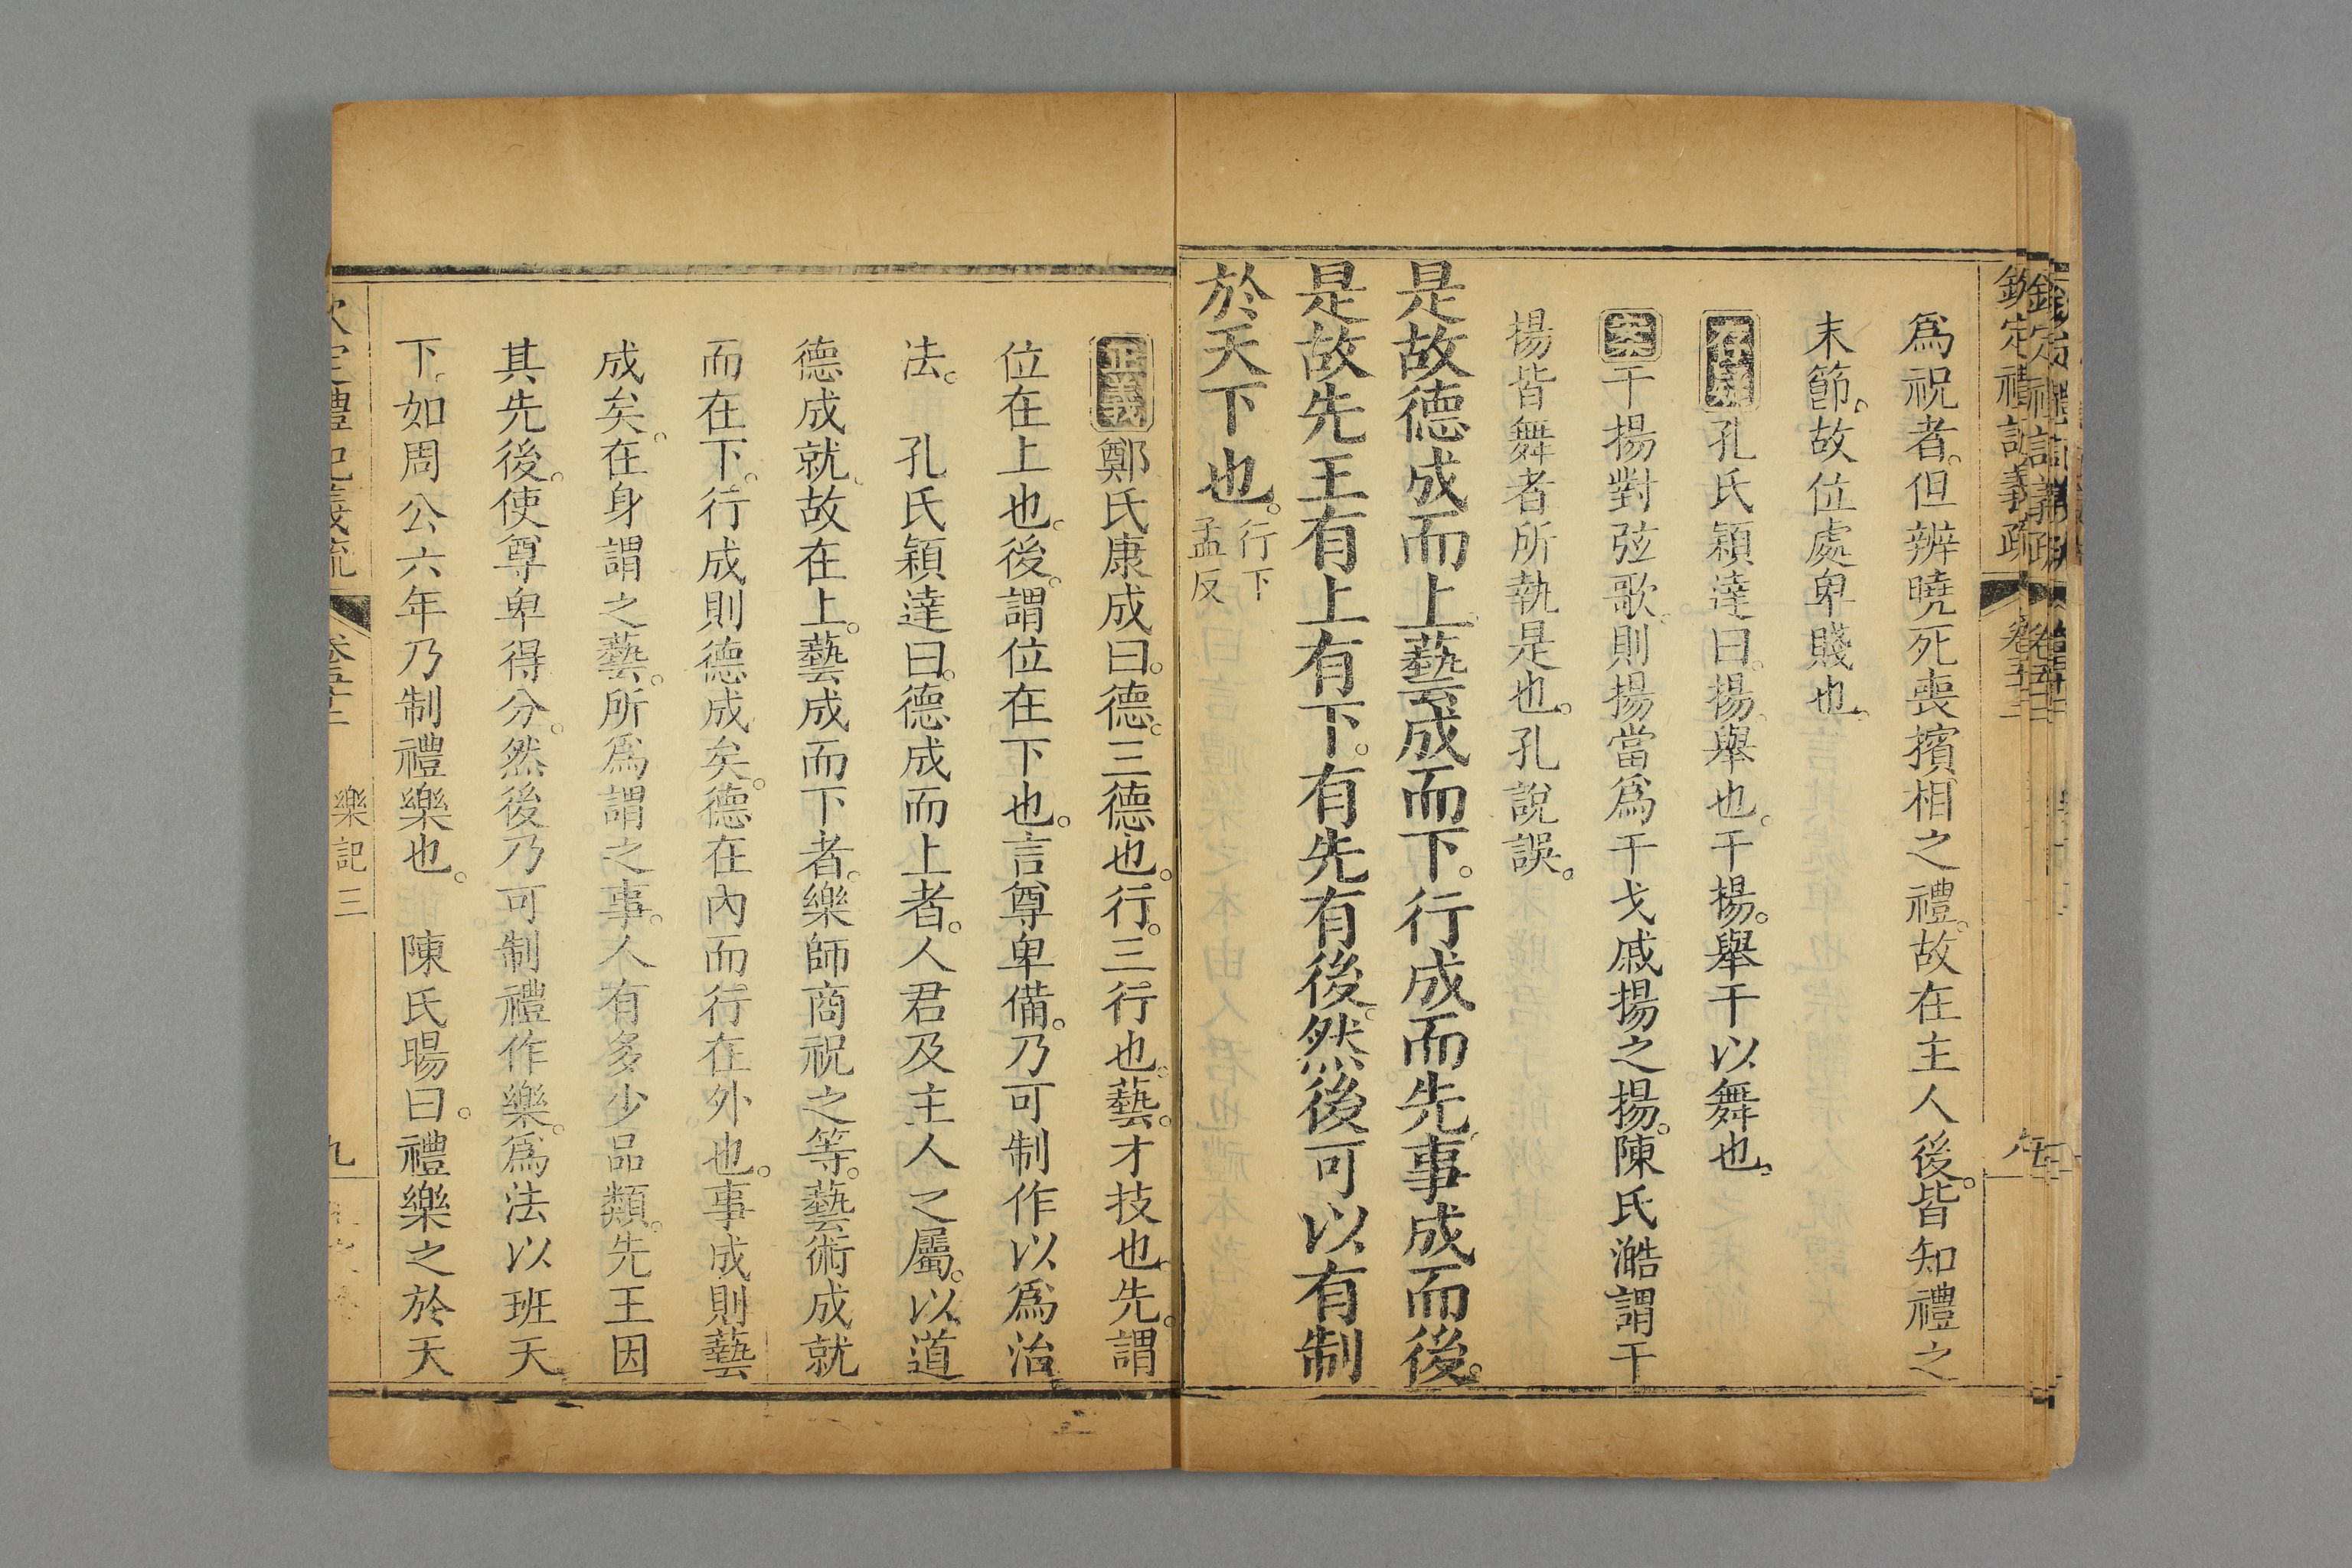 爲祝者。但辨曉死喪擯相之禮。故在主人後。皆知禮之
末節。故位處卑賤也。
存異孔氏穎達曰。揚。舉也。干揚。舉干以舞也。
案干揚對弦歌。則揚當爲干戈戚揚之揚。陳氏澔謂干
揚皆舞者所執是也。孔說誤。
是故德成而上。藝成而下。行成而先。事成而後。
是故先王有上有下。有先有後。然後可以有制
於天下也。行下孟反
正義鄭氏康成曰。德。三德也。行。三行也。藝。才技也。先。謂
位在上也。後。謂位在下也。言尊卑備。乃可制作以爲治
法。　孔氏穎達曰。德成而上者。人君及主人之屬。以道
德成就。故在上。藝成而下者。樂師商祝之等。藝術成就
而在下。行成則德成矣。德在內而行在外也。事成則藝
成矣。在身謂之藝。所爲謂之事。人有多少品類。先王因
其先後。使尊卑得分。然後乃可制禮作樂。爲法以班天
下。如周公六年乃制禮樂也。　陳氏暘曰。禮樂之於天
欽定禮記義疏　卷五十二　樂記三　九